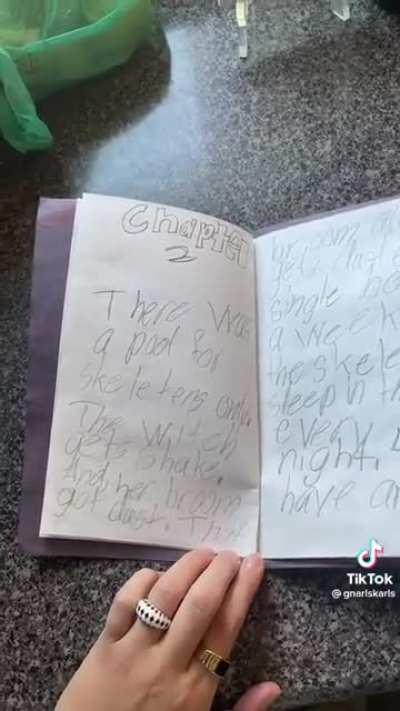 Chapter
2
There was
a pool for
skeletens only.
The witch
gets shake.
And her broom
got dust. The
broom
gets
single
a week
the skele
sleep n th
every
night.
have an
TikTok
@gnarlskarls